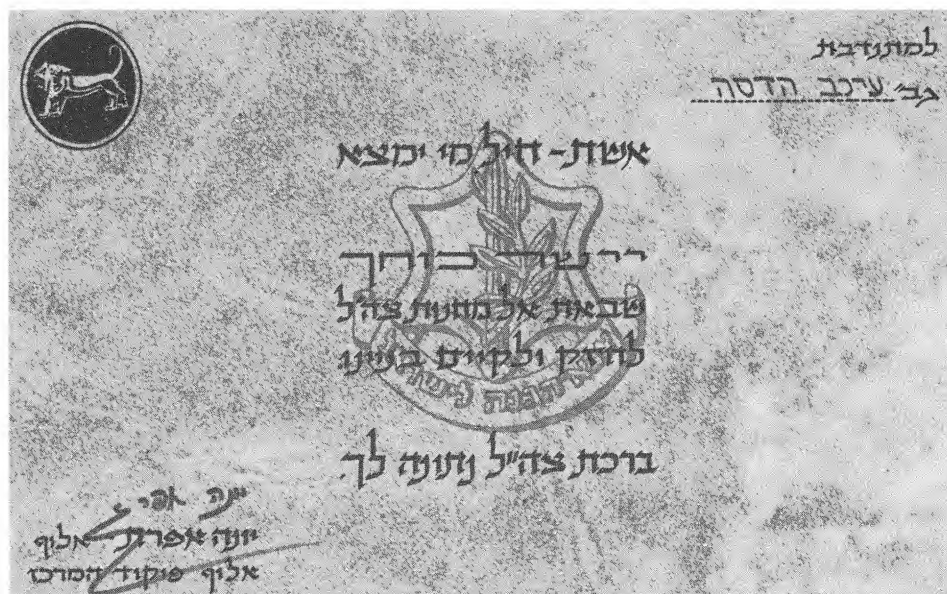 למתנדבת
גב' ערכב הדסה
אשת-חיל מי ימצא
יישר כוחך
שבאת אל מחנות צה"ל
לחזק ולקיים בניינו
צבא הגנה לישראל
ברכת צה"ל נתונה לך.
יונה אפרת אלוף
אלוף פיקוד המרכז